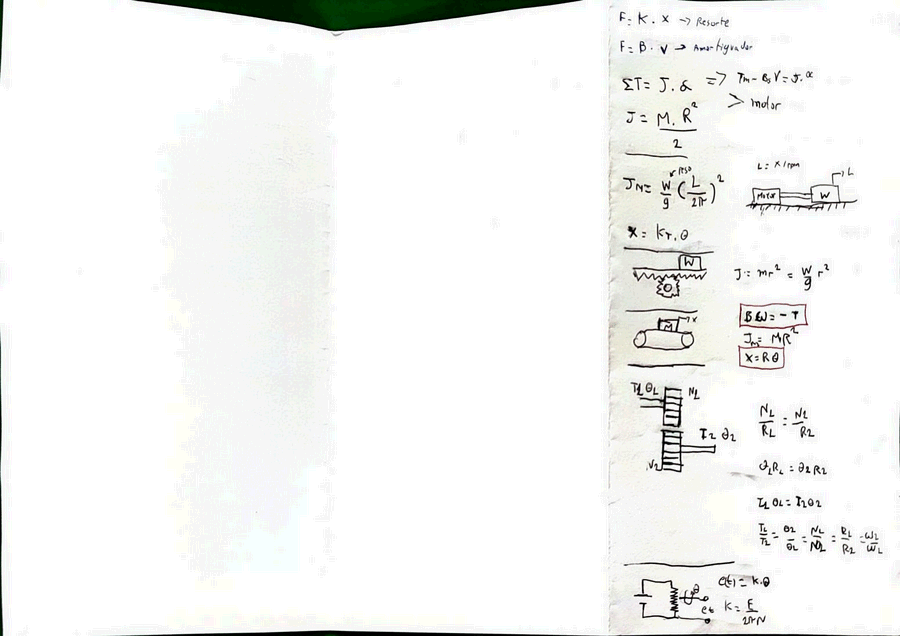 F = K . x → Resorte
F = B . V → Amortiguador
ΣT = J . α => Tm - Bs V = J . α
> motor
J = M . R² / 2
L = x / rpm
JM = W/g (L/2π)²
peso
Motor W L
x = Kr . θ
W
J = mr² = W/g r²
B W = - T
M x
JM = MR²
x = Rθ
T1 θ1 N1
T2 θ2
N2
N1/R1 = N2/R2
θ1R1 = θ2R2
T1 θ1 = T2θ2
T1/T2 = θ2/θ1 = N1/N2 = R1/R2 = ω2/ω1
θ
e(t) = K.θ
et
K = E / 2πN